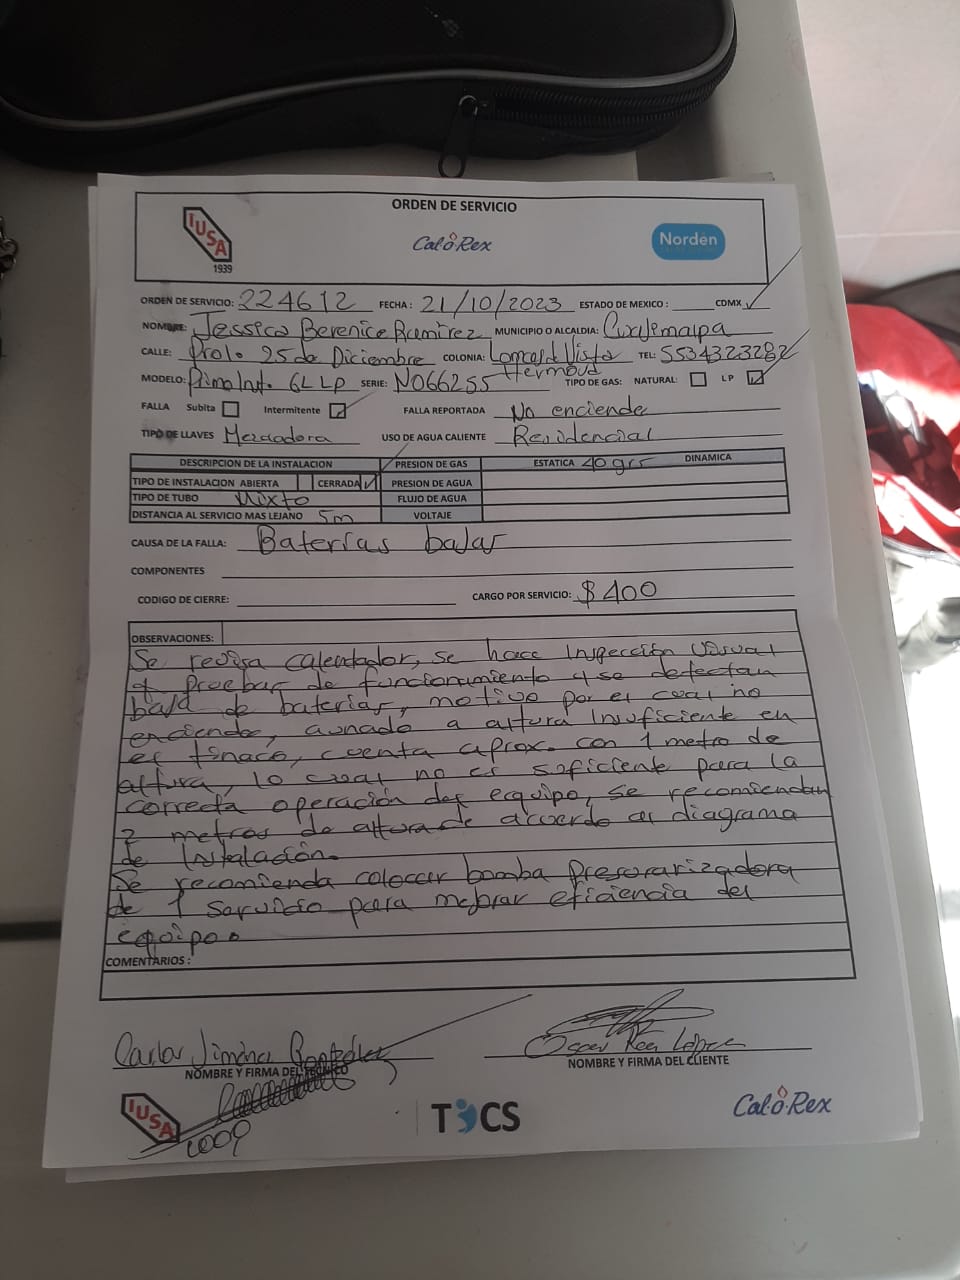 ORDEN DE SERVICIO
IUSA
1939
Cal-o-Rex
Nordén
ORDEN DE SERVICIO: 224612 FECHA : 21/10/2023 ESTADO DE MEXICO : CDMX ✓
NOMBRE: Jessica Berenice Ramirez MUNICIPIO O ALCALDIA: Cuajimalpa
CALLE: Prolo 25 de Diciembre COLONIA: Lomas de Vista Hermosa TEL: 5534323282
MODELO: Inst. 6L LP SERIE: N066255 TIPO DE GAS: NATURAL: LP ✓
FALLA Subita Intermitente ✓ FALLA REPORTADA No enciende
TIPO DE LLAVES Mezcladora USO DE AGUA CALIENTE Residencial
DESCRIPCION DE LA INSTALACION PRESION DE GAS ESTATICA 40 grs DINAMICA
TIPO DE INSTALACION ABIERTA CERRADA ✓ PRESION DE AGUA
TIPO DE TUBO Mixto FLUJO DE AGUA
DISTANCIA AL SERVICIO MAS LEJANO 5m VOLTAJE
CAUSA DE LA FALLA: Baterías bajas
COMPONENTES
CODIGO DE CIERRE: CARGO POR SERVICIO: $400
OBSERVACIONES:
Se revisa calentador, se hace Inspección Visual
y pruebas de funcionamiento y se detectan
baja de baterias, motivo por el cual no
enciende, aunado a altura Insuficiente en
el tinaco, cuenta aprox. con 1 metro de
altura, lo cual no es suficiente para la
correcta operación del equipo, se recomiendan
2 metros de altura de acuerdo al diagrama
de Instalación.
Se recomienda colocar bomba Presurarizadora
de 1 Servicio para mejorar eficiencia del
equipo.
COMENTARIOS :
Carlos Jiménez González
NOMBRE Y FIRMA DEL TECNICO
NOMBRE Y FIRMA DEL CLIENTE
IUSA
TICS
Cal-o-Rex